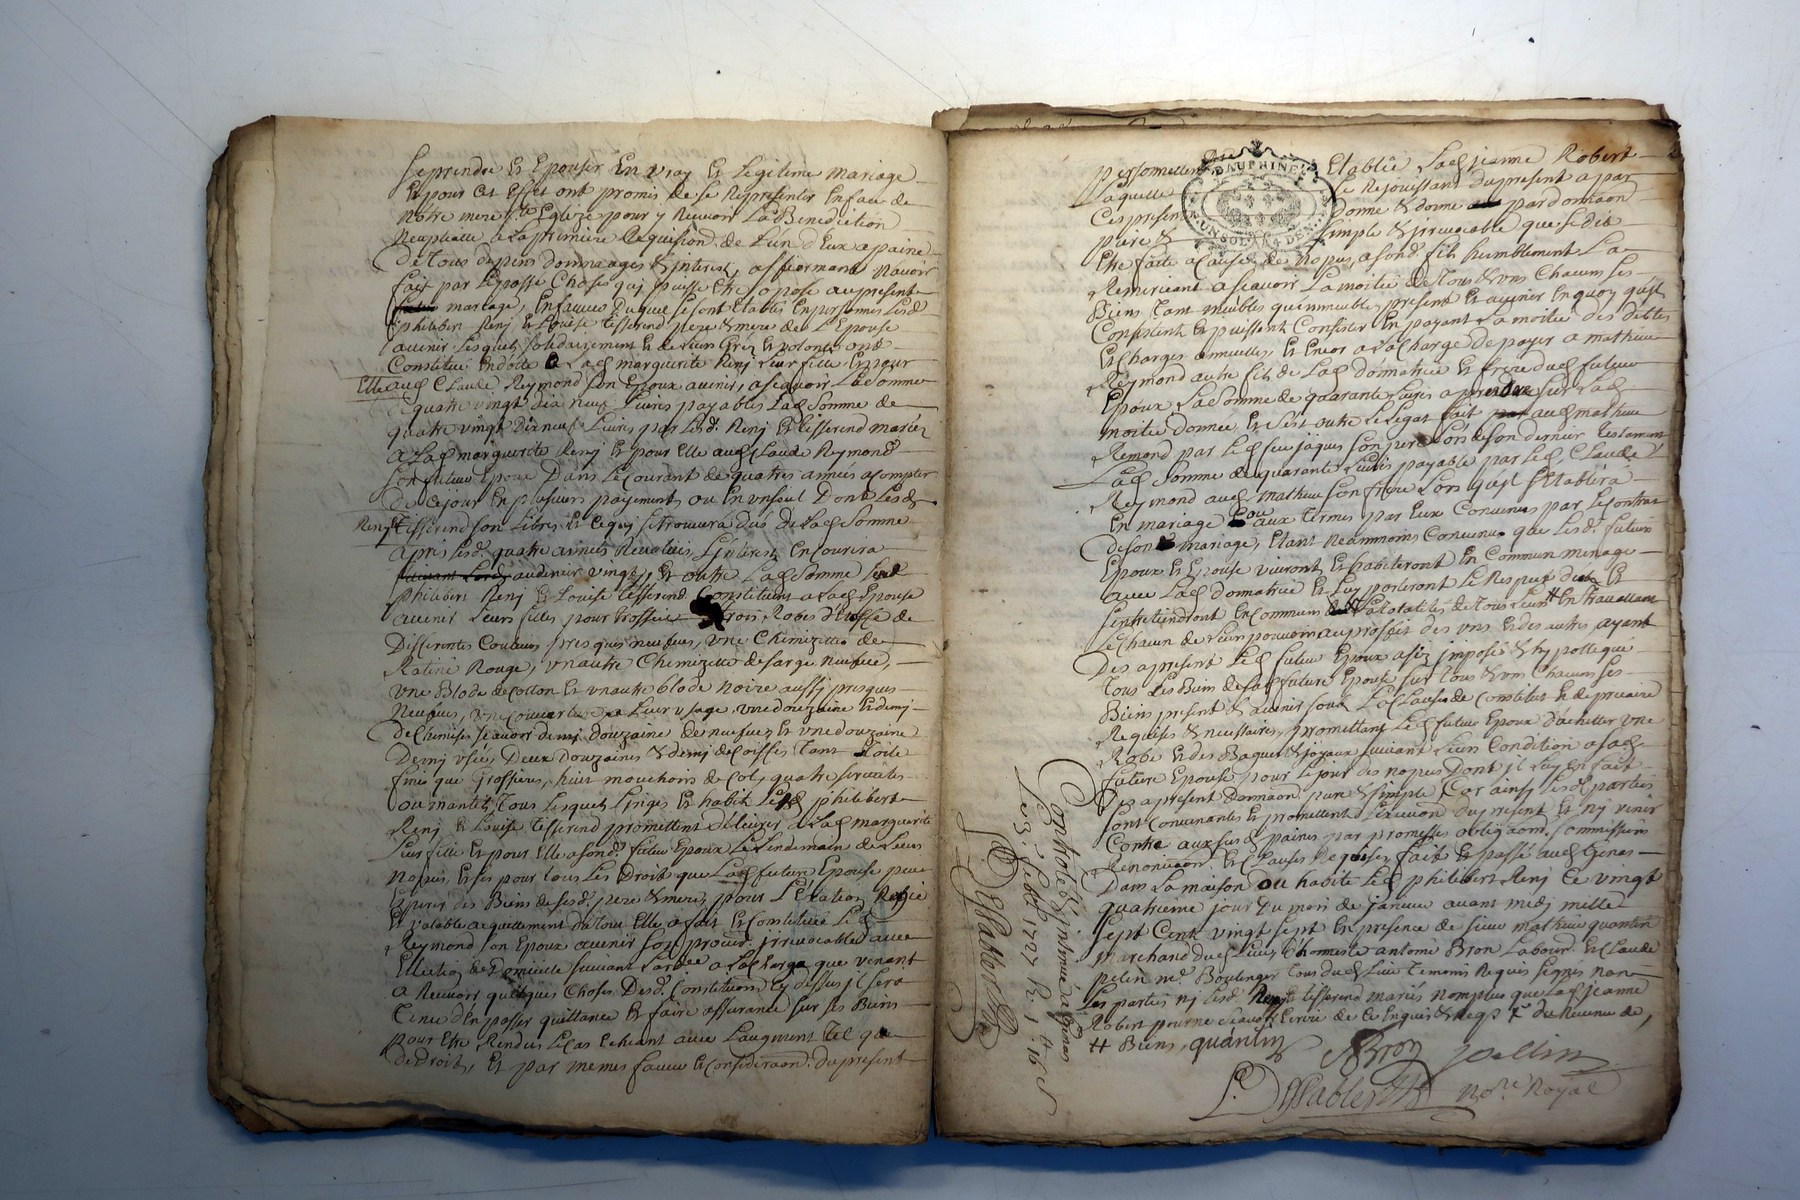 se prendre Et Epouser En vray Et Legitime mariage
Et pour Cet Effet ont promis de se Representer En face de
Notre mere ste Eglize pour y Recevoir La Benediction
Nuptialle a La premiere Requision de L'un d'Eux a paine
De Tous depens dommages & interest, affirmant N'avoir
fait par Le passé Chose quj puisse Etre oposé au present
mariage, En faveur Duquel se sont Etablis En personnes Lesd
philibert Renj Et Louise Tisserend pere & mere de L'Epouse
avenir Lesquels solidairement Et de Leurs Gréz Et volonte ont
Constitué En dotte a Lad marguerite Renj Leur fille Et pour
Elle aud Claude Reymond son Epoux avenir, ascavoir La Somme
de quatre vingt dix neuf Livres payables Lad Somme de
quatre vingt Dix neuf Livres par Lesd. Renj Et Tisserend mariez
a Lad marguerite Renj Et pour Elle aud Claude Reymond
son futeur Epoux Dans Le Courant de quatres années a Compter
De Cejour En plusieurs payements ou En un seul Dont Lesd
Renj & Tisserend son Libres Et Ce quj se trouvera dub de Lad Somme
apres Lesd. quatre années Revolues L'interest En courira
au denier vingt, Et outre Lad Somme Lesd
philibert Renj Et Louise Tisserend Constituent a Lad Epouse
avenir Leurs filles pour Trossel Trois Robes d'Etoffe de
Differentes Couleurs presques neufves, Une Chemizette de
Ratine Rouge, un autre Chemizette de sarge neufve,
une Blode de Cotton Et un autre blode noire aussj presques
Neufves, une Couverte a Leur usage, une douzaine Et demj
de Chemises scavoir demj douzaine de neufves Et une douzaine
Demj uséé, Deux Douzaines & demj de Coiffes Tant Toile
fine que Grossiere, huit mouchoirs de Col, quatre serviettes
ou mantils, Tous Lesquels Linges Et habit Lesd philibert
Renj & Louise Tisserend promettent délivrer a Lad marguerite
Leur fille Et pour Elle a sond. futeur Epoux Le Lendemain de Leurs
Nopces, Et Ses pour tous Les Droit que Lad future Epouse peut
Esperer des Biens de sesd. pere & mere, pour L'Exation Regie
Et valable acquittement du Tout Elle a fait Et Constitué Led
Reymond son Epoux avenir son procur. irrevocable avec
Ellection de domicille suivant L'ordre a La Charge que venant
a Recevoir quelques Choses Desd. Constitutions Cy dessus il sera
Tenu d'En passer quittance Et faire assurance sur ses Biens
pour Etre Rendus Le Cas Echeant avec L'augment Tel que
de Droit, Et par memes faveur Et Consideraon. Du present
personnellement Etablie Lad jeanne Robert
Laquelle se Rejouissant du present a par
Ces present Donné & donne par donnaon
pure & simple & irrevocable que se dit
Etre faite a Cause de Nopces, a sond. fils humblement La
Remerciant ascavoir La moitié de Tous & uns Chacuns ses
Biens Tant meubles qu'immeubles, present Et avenir En quoy qu'jl
Consistent Et puissent Consister En payant La moitié des dettes
Et Charges annuelles, Et Encor a La Charge de payer a mathieu
Reymond autre fils de Lad donnatrice Et frere dud futeur
Epoux La Somme de quarante Livres a prendre sur Lad
moitié donnée Et C'est outre Le Legat fait aud mathieu
Remond par Led feu jaques son pere Lors de son dernier Testament
Lad Somme de quarante Livres payable par Led Claude
Reymond aud mathieu son frere Lors qu'jl s'Etablira
En mariage ou aux Termes par Eux Convenus par Le Contrat
de son mariage, Etant Neammoins Convenus que Lesd. futeurs
Epoux Et Epouse vivront Et habiteront En Commun menage
avec Lad donnatrice Et Luy porteront Le Respect dub Et
s'entretiendront En Commun La Totalités de Tous Leurs ++ En Travaillant
Le Chacun de Leur pouvoir au proffit des uns Et des autres, ayant
Des apresent Led futeur Epoux assis jmposé & hypottequé
Tous Les Biens de Lad future Epouse sur Tous & uns Chacuns Ses
Biens present & avenir sous La Clause de Constitut & de precaire
Requises & necessaires, promettant Led futeur Epoux d'achetter une
Robe Et des Bagues & joyaux suivant Leur Condition a Lad
future Epouse pour Le jour des nopces Dont jl Luy En fait
Des apresent Donnaon pure & simple Car ainsj Lesd parties
sont Convenantes Et promettent L'Execuon du present Et nj venir
Contre aux susd paines par promesses obligaons. sommissions
Renonciaon Et Clauses Requises fait Et passé aud Genas
Dans La maison ou habite Led philibert Renj Ce vingt
quatrieme jour du mois de janvier avant midj mille
sept Cent vingt sept En presence de sieur mathieu quantin
marchand dud Lieu, d'honneste antoine Bron Labour. Et Claude
pelin me. Boulenger Tous dud Lieu Temoins Requis signés non
Les parties nj Lesd. Renj & Tisserend mariés nomplus que Lad jeanne
Robert pour ne scavoir Ecrire de Ce Enquis & Reqs du Revenu de,
++ Biens, quantin
ABron pellin
Nore. Royal
Controlé & jntimué a Genas
Le 3e. febr 1727 R. 1 ++ 16 s